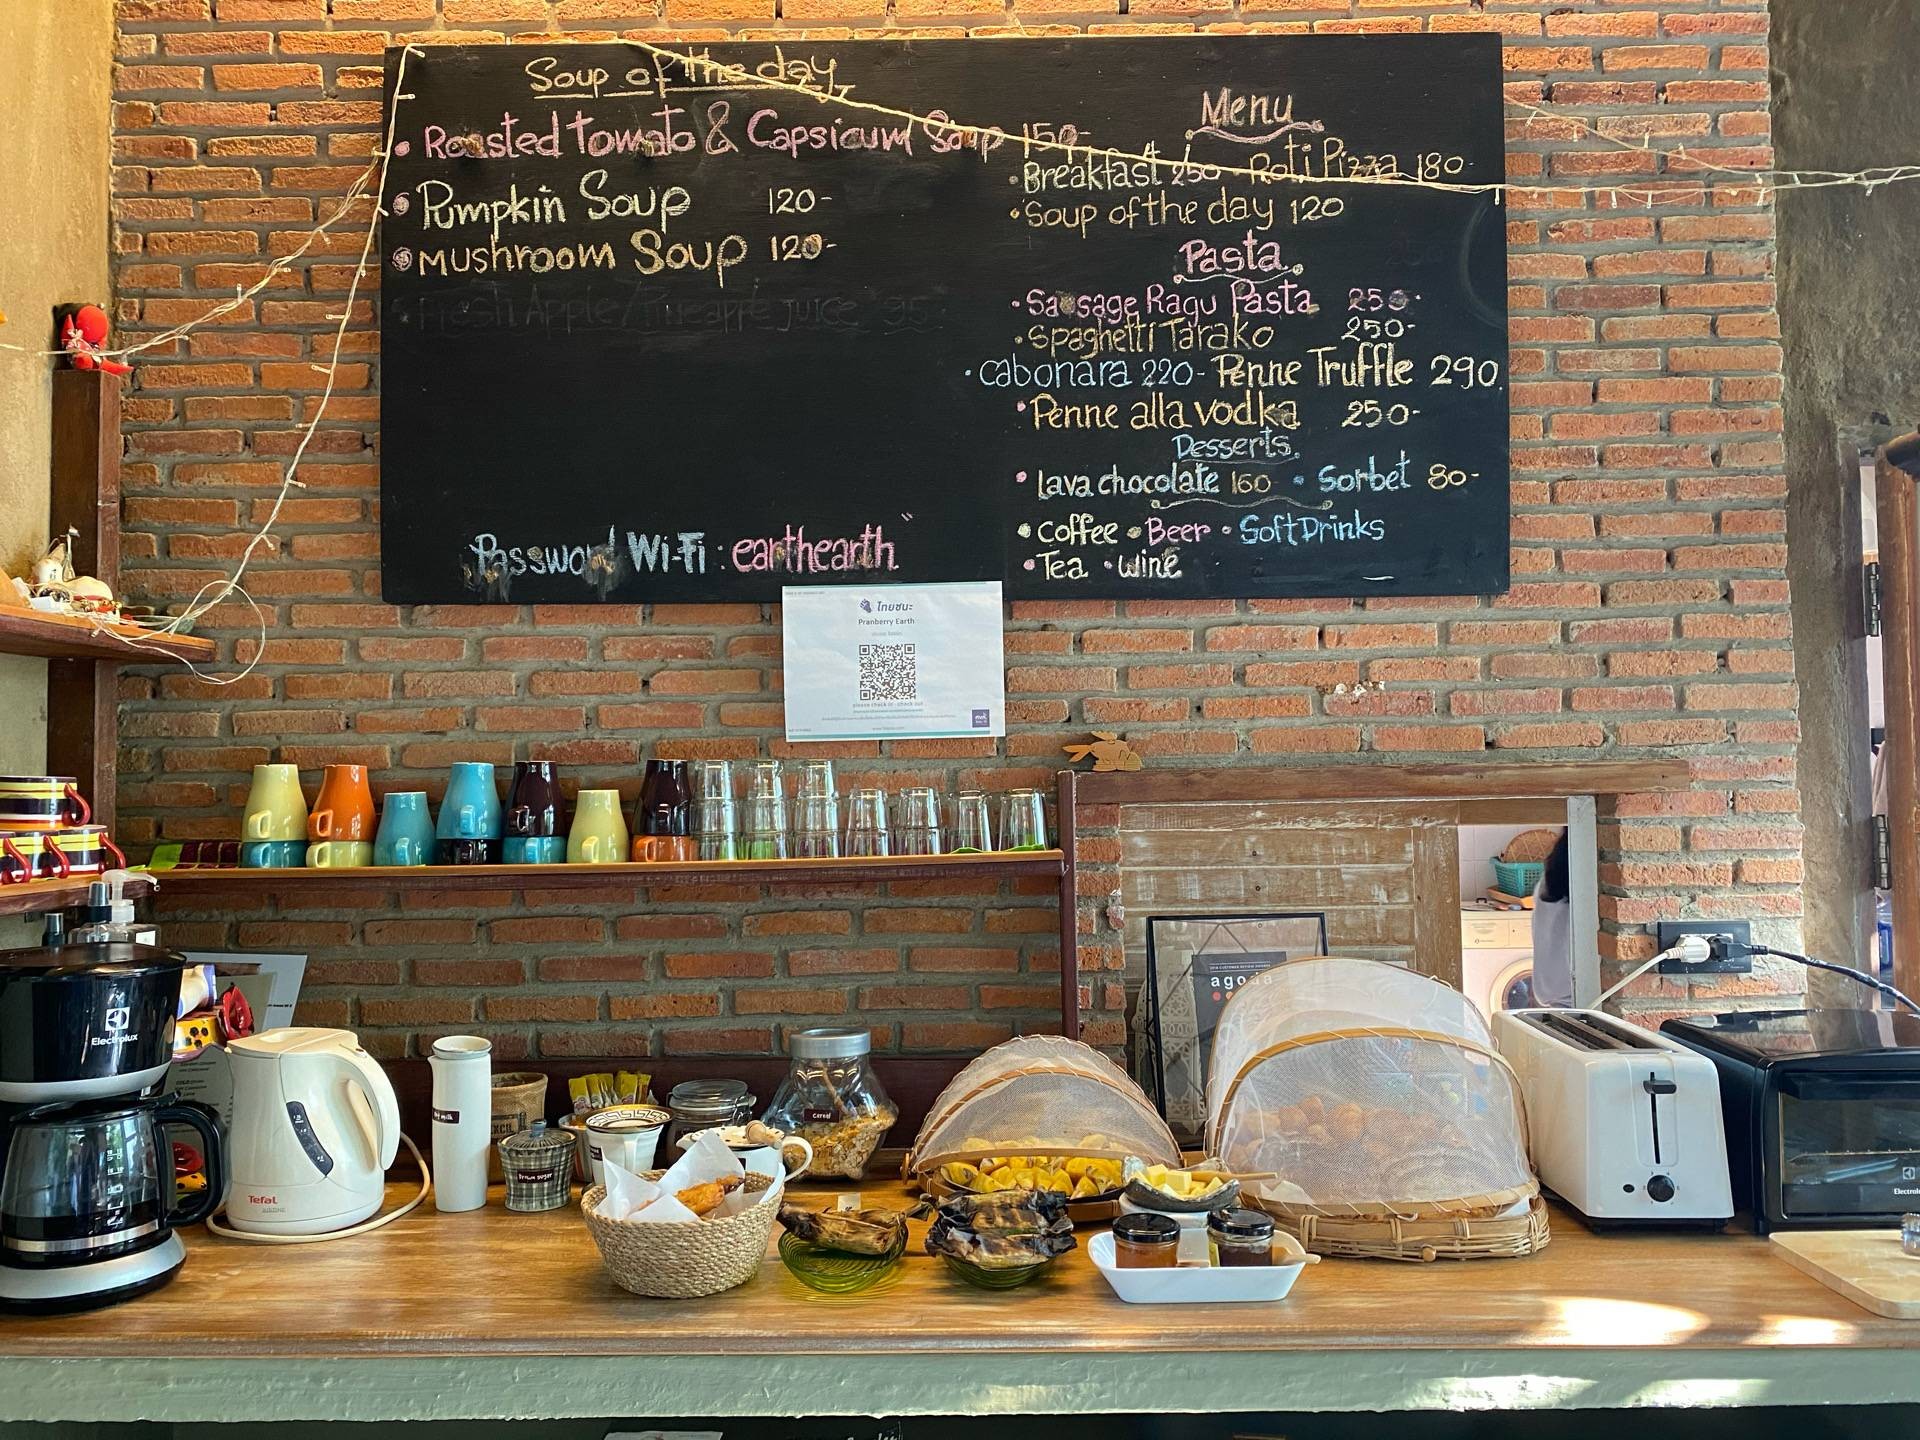 Soup of the day
• Roasted tomato & Capsicum Soup 150-
• Pumpkin Soup 120-
• Mushroom Soup 120-
Fresh Apple/Pineapple juice 95-
Password Wi-Fi : earthearth"
Menu
• Breakfast 250 • Roti Pizza 180-
• Soup of the day 120
Pasta
• Sausage Ragu Pasta 250-
• Spaghetti Tarako 250-
• Cabonara 220- Penne Truffle 290.
• Penne alla vodka 250-
Desserts.
• Lava chocolate 160 • Sorbet 80-
• Coffee • Beer • Soft Drinks
• Tea • Wine
ไทยชนะ
Pranberry Earth
please check in - check out
agoda
Electrolux
Tefal
milk
brown sugar
cereal
Electrolux